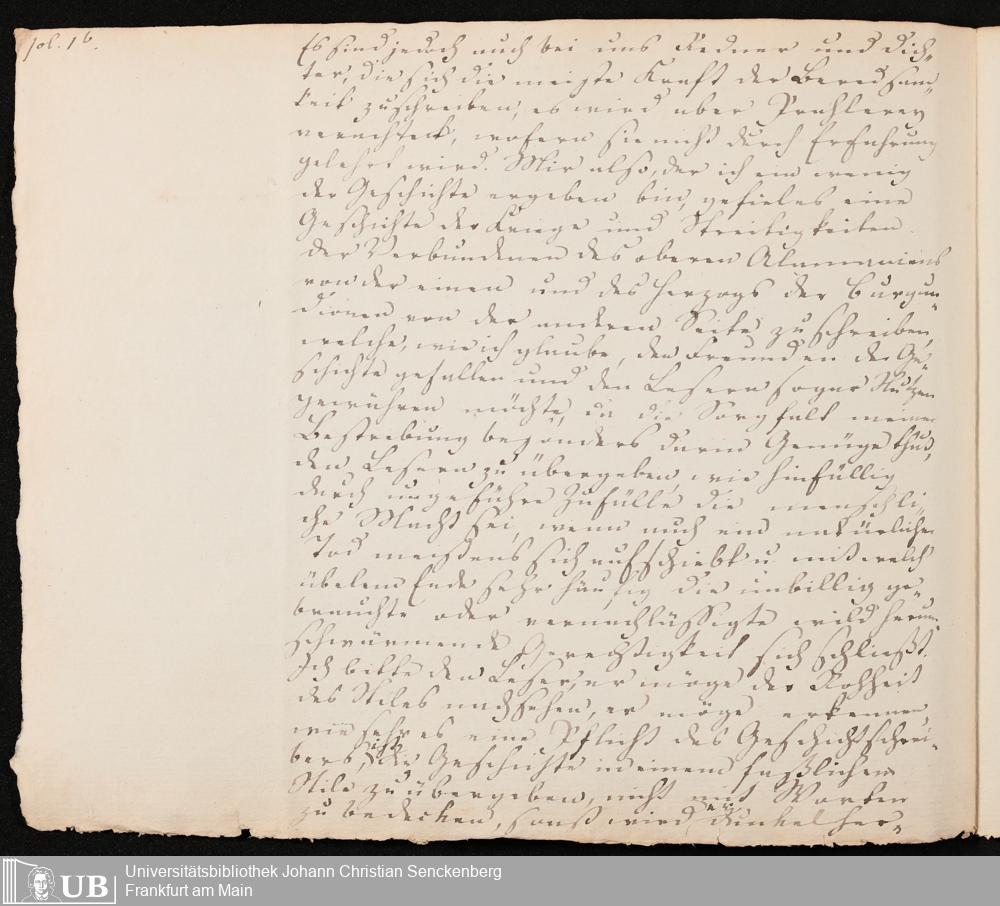 fol. 1b.
Es sind jedoch auch bei uns Redner und Dich-
ter, die sich die meiste Kraft der Beredsam-
keit zuschreiben, es wird aber Prahlerey
verachtet, wofern sie nicht durch Erfahrung
gelehrt wird. Mir also, der ich ein wenig
der Geschichte ergeben bin, gefiel es eine
Geschichte der Kriege und Streitigkeiten
der Verbundenen des oberen Alamaniens
von der einen und des Herzogs der Burgun-
dionen von der anderen Seite zu schreiben,
welche, wie ich glaube, den Freunden der Ge-
schichte gefallen und den Lesern sogar Nutzen
gewähren möchte, da die Sorgfalt meiner
Bestrebung besonders darin Genüge thut,
den Lesern zu übergeben, wie hinfällig
durch ungefähre Zufälle die menschli-
che Macht sei, wenn auch ein natürlicher
Tod meistens sich aufschiebt u. mit welch
übelem Ende sehr häufig die unbillig ge-
brauchte oder vernachlässigte wild herum-
schwärmende Gerechtigkeit sich schließt.
Ich bitte den Leser, er möge der Rohheit
des Stiles nachsehen, er möge erkennen,
wie sehr es eine Pflicht des Geschichtschrei-
bers ist, die Geschichte in einem faßlichen
Stile zu übergeben, nicht mit Worten
zu bedecken, sonst wird dunkel her-
Universitätsbibliothek Johann Christian Senckenberg
Frankfurt am Main
UB